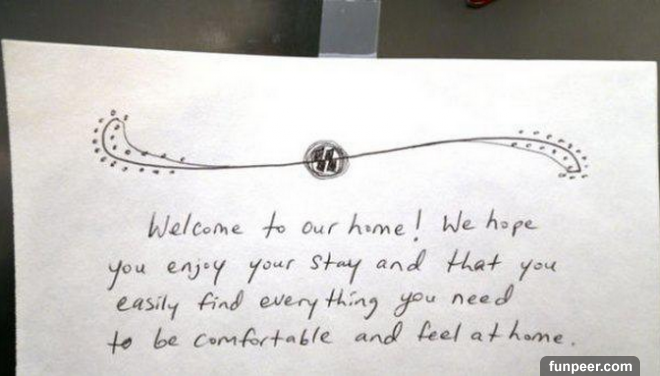 Welcome to our home! We hope
you enjoy your stay and that you
easily find everything you need
to be comfortable and feel at home.
funpeer.com